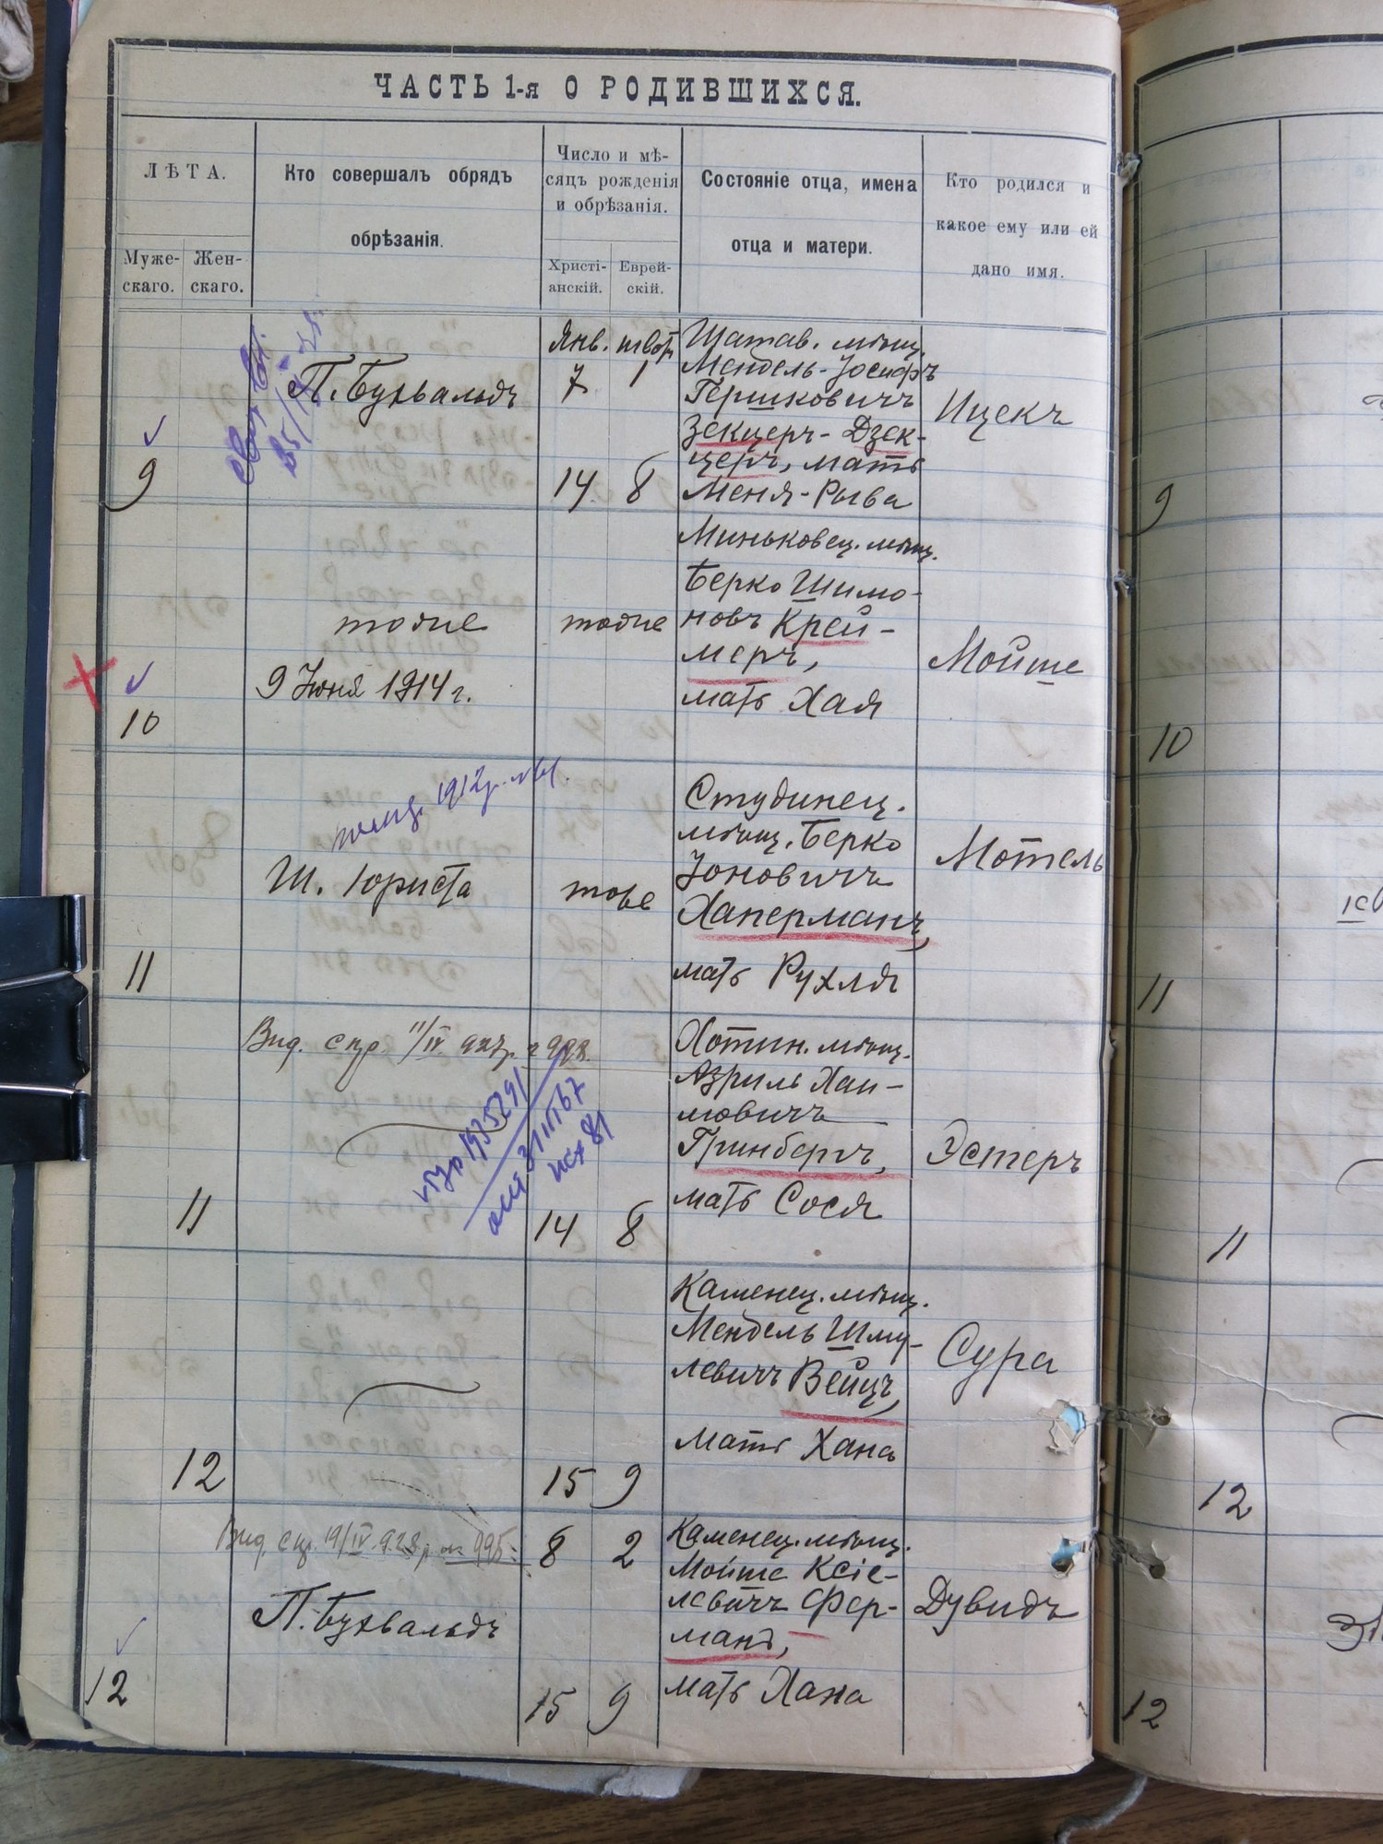 ЧАСТЬ 1-я О РОДИВШИХСЯ.
ЛѢТА.
Муже-
скаго.
Жен-
скаго.
Кто совершалъ обрядъ
обрѣзанія.
Число и мѣ-
сяцъ рожденія
и обрѣзанія.
Христі-
анскій.
Еврей-
скій.
Состояніе отца, имена
отца и матери.
Кто родился и
какое ему или ей
дано имя.
9
П. Бухвальдъ
Янв.
7 1
14 8
Шатав. мѣщ.
Мендель-Іосифъ
Гершковичъ
Зекцеръ-Дзек-
церъ, мать
Меня-Рыва
Ицекъ
10
тоже
9 Іюня 1914 г.
тоже
Миньковец. мѣщ.
Берко Шимо-
новъ Крей-
меръ,
мать Хая
Мойше
11
1912
Ш. Юриста
тоже
Студинец.
мѣщ. Берко
Іоновичъ
Хаперманъ,
мать Рухля
Мотель
11
Вид. спр. 11/IV 927 р.
14 8
Хотин. мѣщ.
Азриль Хаи-
мовичъ
Гринбергъ,
мать Сося
Эстеръ
12
15 9
Каменец. мѣщ.
Мендель Шму-
левичъ Вейцъ,
мать Хана
Сура
12
Вид. спр. 19/IV 928 р. № 995.
П. Бухвальдъ
8 2
15 9
Каменец. мѣщ.
Мойше Ксіе-
левичъ Фер-
манъ,
мать Хана
Дувидъ
9
10
11
11
12
12